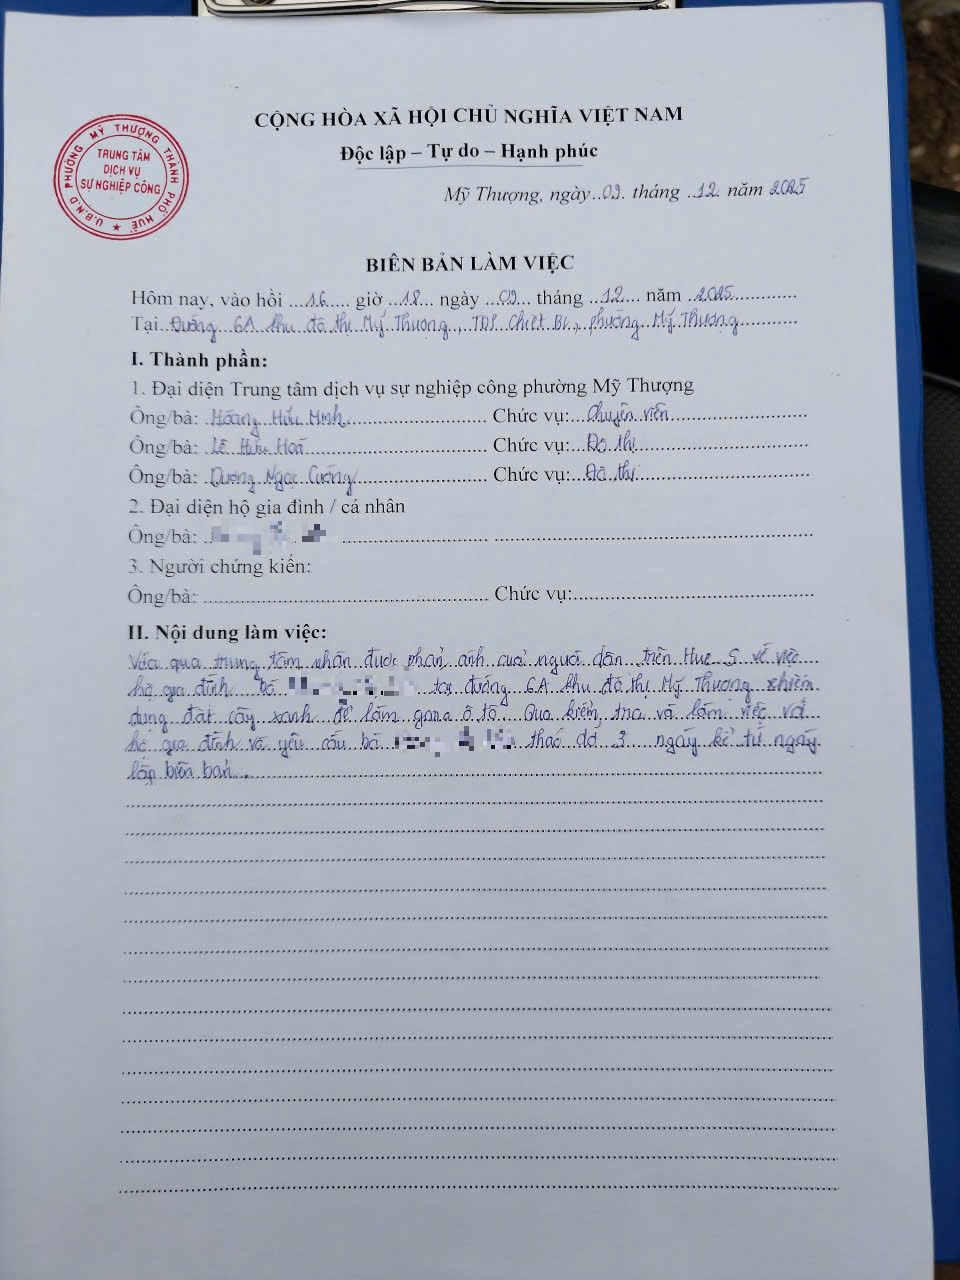 CỘNG HÒA XÃ HỘI CHỦ NGHĨA VIỆT NAM
Độc lập – Tự do – Hạnh phúc
U.B.N.D PHƯỜNG MỸ THƯỢNG THÀNH PHỐ HUẾ
TRUNG TÂM
DỊCH VỤ
SỰ NGHIỆP CÔNG
Mỹ Thượng, ngày 09 tháng 12 năm 2025
BIÊN BẢN LÀM VIỆC
Hôm nay, vào hồi 16 giờ 18 ngày 09 tháng 12 năm 2025
Tại Đường 6A khu đô thị Mỹ Thượng, TDP Chiết Bi, phường Mỹ Thượng
I. Thành phần:
1. Đại diện Trung tâm dịch vụ sự nghiệp công phường Mỹ Thượng
Ông/bà: Hoàng Hữu Minh Chức vụ: Chuyên viên
Ông/bà: Lê Hữu Hoá Chức vụ: Đô thị
Ông/bà: Dương Ngọc Cường Chức vụ: Đô thị
2. Đại diện hộ gia đình / cá nhân
Ông/bà:
3. Người chứng kiến:
Ông/bà: Chức vụ:
II. Nội dung làm việc:
Vừa qua trung tâm nhận được phản ánh của người dân trên Hue S về việc
hộ gia đình bà tại đường 6A khu đô thị Mỹ Thượng chiếm
dụng đất cây xanh để làm gara ô tô. Qua kiểm tra và làm việc với
hộ gia đình và yêu cầu bà tháo dở 3 ngày kể từ ngày
lập biên bản.